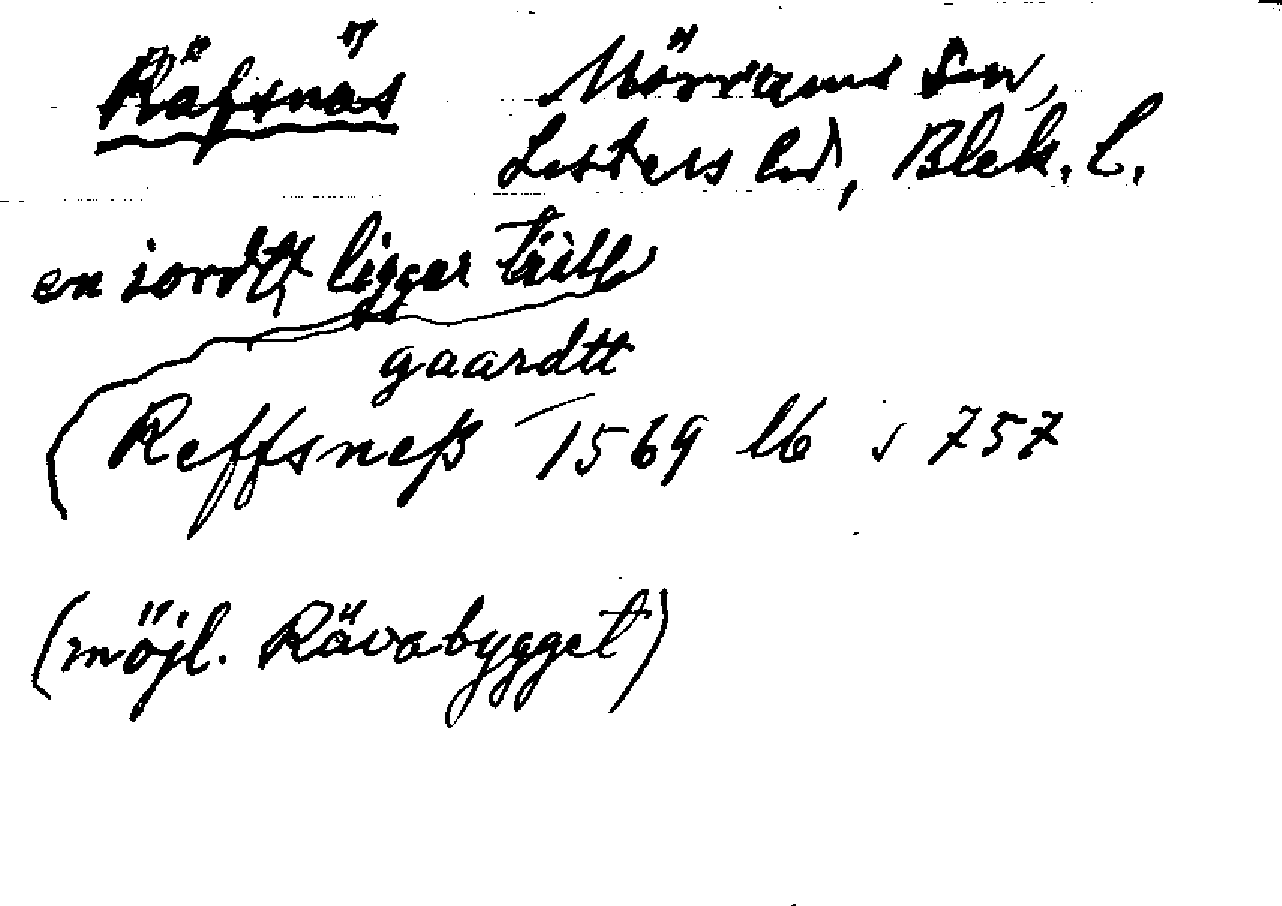 Räfsnäs Mörrums Sn,
Listers hd, Blek. l.
en jordtt ligger tiill
gaardtt
Reffsneß 1569 lb s 757
(möjl. Rävabygget)